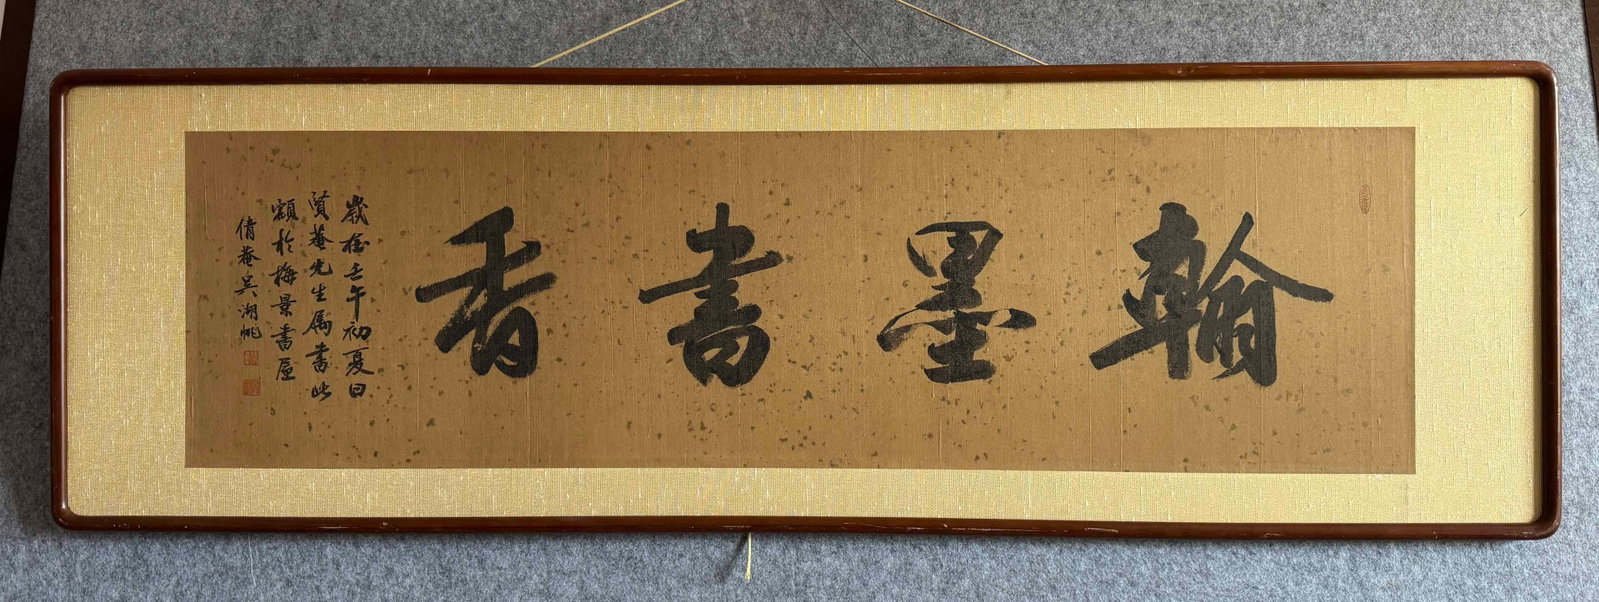 翰墨書香
歲在壬午初夏日
賢菴先生屬書此
額於梅景書屋
倩菴吳湖帆